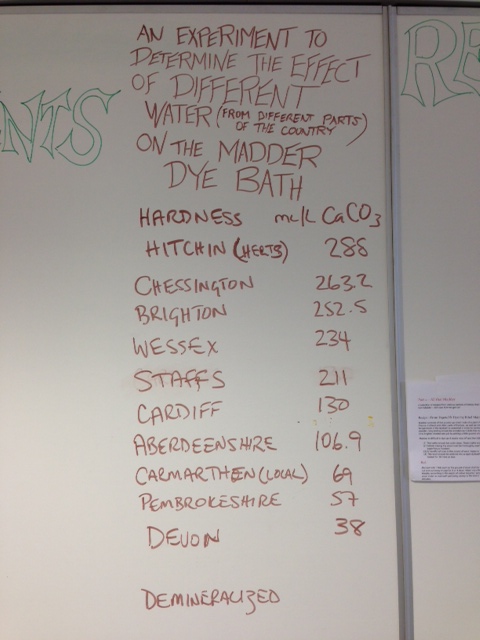 AN EXPERIMENT TO
DETERMINE THE EFFECT
OF DIFFERENT
WATER (FROM DIFFERENT PARTS
OF THE COUNTRY)
ON THE MADDER
DYE BATH
HARDNESS mc/L CaCO3
HITCHIN (HERTS) 288
CHESSINGTON 263.2
BRIGHTON 252.5
WESSEX 234
STAFFS 211
CARDIFF 130
ABERDEENSHIRE 106.9
CARMARTHEN (LOCAL) 69
PEMBROKESHIRE 57
DEVON 38
DEMINERALIZED
NTS
RE